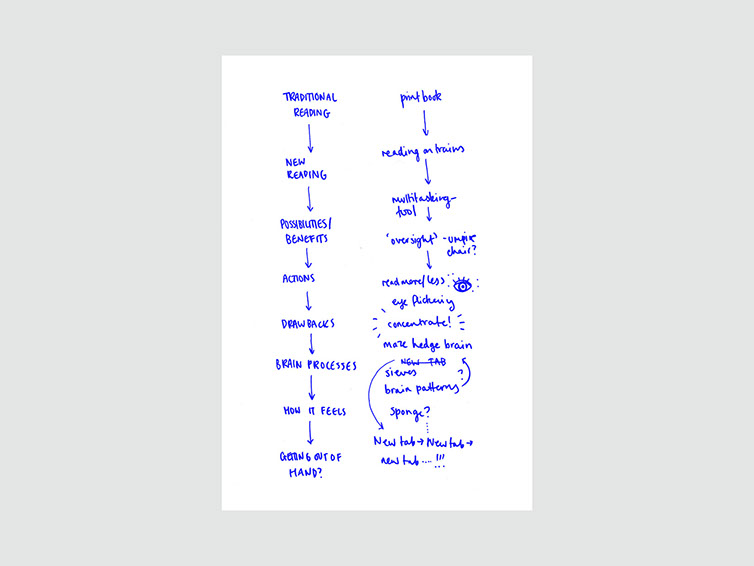 TRADITIONAL
READING
NEW
READING
POSSIBILITIES/
BENEFITS
ACTIONS
DRAWBACKS
BRAIN PROCESSES
HOW IT FEELS
GETTING OUT OF
HAND?
print book
reading on trains
multitasking-
tool
'oversight' - umpire
chair?
read more/less
eye flickering
concentrate!
maze hedge brain
NEW TAB
sieves ?
brain patterns
sponge?
New tab → New tab →
new tab .... !!!